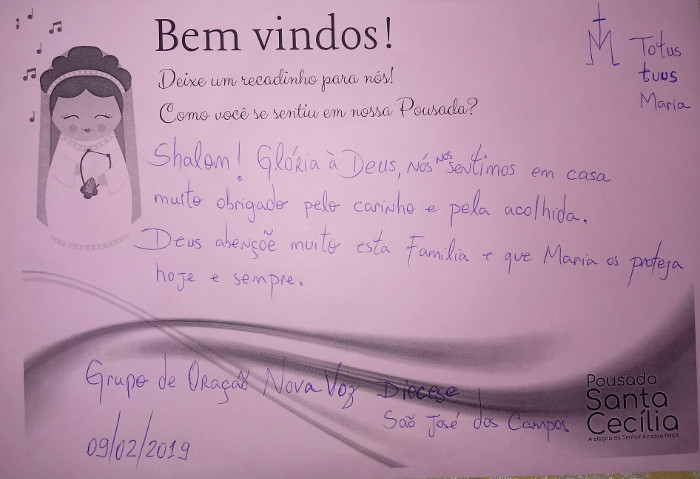 Bem vindos!
Deixe um recadinho para nós!
Como você se sentiu em nossa Pousada?
Totus
tuus
Maria
Shalom! Glória à Deus, nós nos sentimos em casa
muito obrigado pelo carinho e pela acolhida.
Deus abençõe muito esta Familia e que Maria os proteja
hoje e sempre.
Grupo de Oração Nova Voz Diocese
São José dos Campos
09/02/2019
Pousada
Santa
Cecília
A alegria do Senhor é nossa força